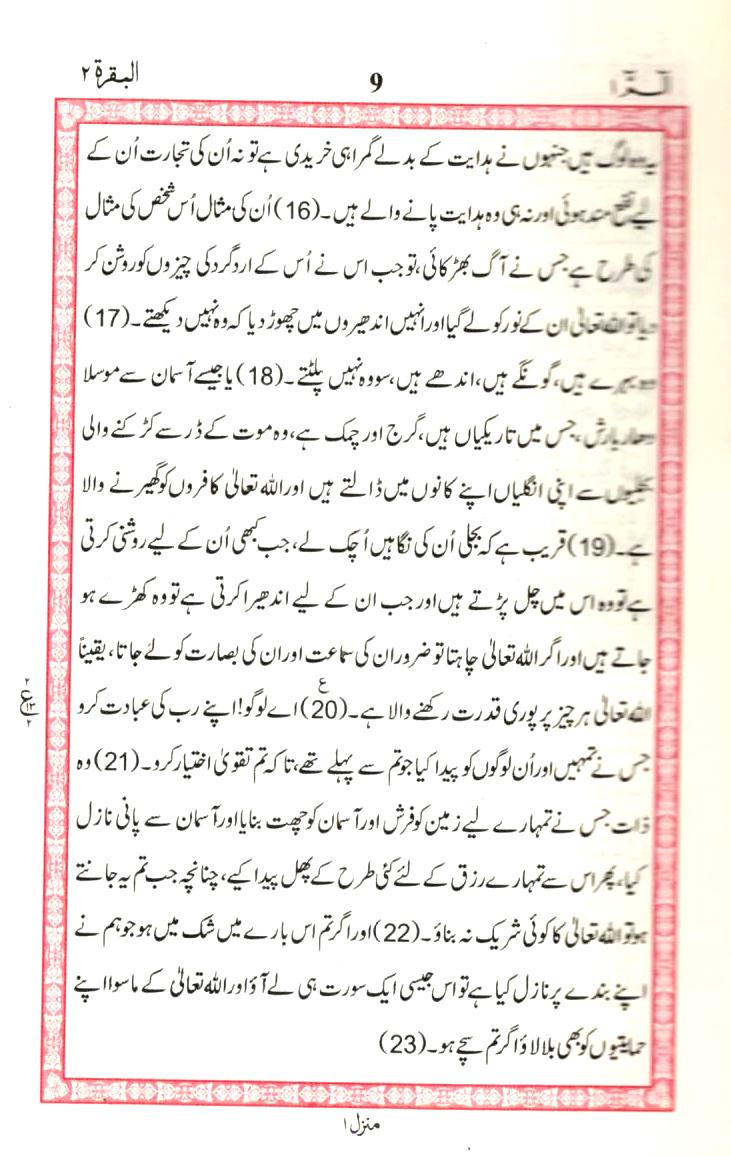 الٓـمّٓ ۱ 9 البقرة ۲
یہ وہ لوگ ہیں جنہوں نے ہدایت کے بدلے گمراہی خریدی ہے تو نہ اُن کی تجارت اُن کے
لیے نفع مند ہوئی اور نہ ہی وہ ہدایت پانے والے ہیں۔(16) اُن کی مثال اُس شخص کی مثال
کی طرح ہے جس نے آگ بھڑکائی، تو جب اس نے اُس کے اردگرد کی چیزوں کو روشن کر
دیا تو اللہ تعالیٰ ان کے نور کو لے گیا اور انہیں اندھیروں میں چھوڑ دیا کہ وہ نہیں دیکھتے۔(17)
وہ بہرے ہیں، گونگے ہیں، اندھے ہیں، سو وہ نہیں پلٹتے۔(18) یا جیسے آسمان سے موسلا
دھار بارش، جس میں تاریکیاں ہیں، گرج اور چمک ہے، وہ موت کے ڈر سے کڑکنے والی
بجلیوں سے اپنی انگلیاں اپنے کانوں میں ڈالتے ہیں اور اللہ تعالیٰ کافروں کو گھیرنے والا
ہے۔(19) قریب ہے کہ بجلی اُن کی نگاہیں اُچک لے، جب کبھی اُن کے لیے روشنی کرتی
ہے تو وہ اس میں چل پڑتے ہیں اور جب ان کے لیے اندھیرا کرتی ہے تو وہ کھڑے ہو
جاتے ہیں اور اگر اللہ تعالیٰ چاہتا تو ضرور ان کی سماعت اور ان کی بصارت کو لے جاتا، یقیناً
اللہ تعالیٰ ہر چیز پر پوری قدرت رکھنے والا ہے۔(20) ع اے لوگو! اپنے رب کی عبادت کرو
۲ ع ۱۳ ۲
جس نے تمہیں اور اُن لوگوں کو پیدا کیا جو تم سے پہلے تھے، تاکہ تم تقویٰ اختیار کرو۔(21) وہ
ذات جس نے تمہارے لیے زمین کو فرش اور آسمان کو چھت بنایا اور آسمان سے پانی نازل
کیا، پھر اس سے تمہارے رزق کے لئے کئی طرح کے پھل پیدا کیے، چنانچہ جب تم یہ جانتے
ہو تو اللہ تعالیٰ کا کوئی شریک نہ بناؤ۔(22) اور اگر تم اس بارے میں شک میں ہو جو ہم نے
اپنے بندے پر نازل کیا ہے تو اس جیسی ایک سورت ہی لے آؤ اور اللہ تعالیٰ کے ماسوا اپنے
حمایتیوں کو بھی بلا لاؤ اگر تم سچے ہو۔(23)
منزل ۱